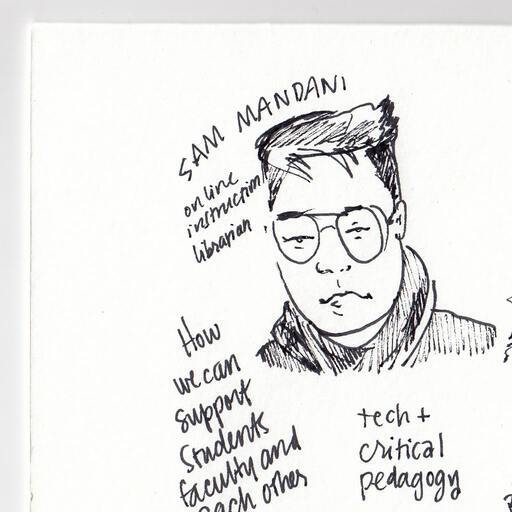 SAM MANDANI
online
instruction
librarian
How
we can
support
students
faculty and
each other
tech +
critical
pedagogy